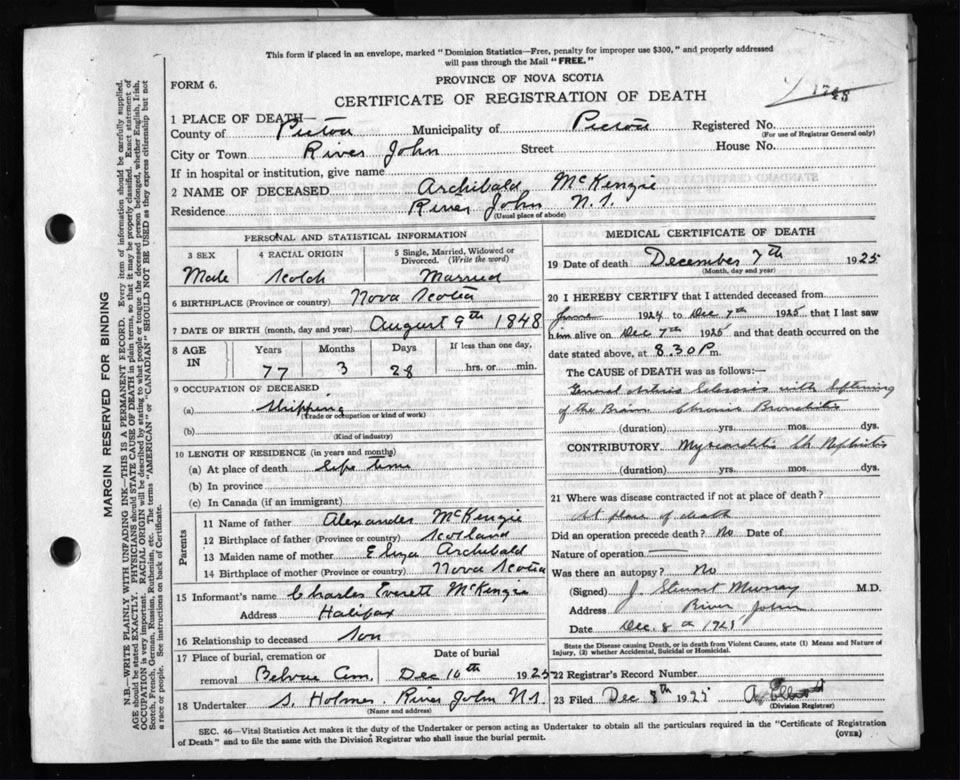 This form if placed in an envelope, marked "Dominion Statistics—Free, penalty for improper use $300," and properly addressed
will pass through the Mail "FREE."
FORM 6.
PROVINCE OF NOVA SCOTIA
CERTIFICATE OF REGISTRATION OF DEATH
1 PLACE OF DEATH—
County of Pictou Municipality of Pictou Registered No.
(For use of Registrar General only)
City or Town River John Street House No.
If in hospital or institution, give name
2 NAME OF DECEASED Archibald McKenzie
Residence River John N.S.
(Usual place of abode)
PERSONAL AND STATISTICAL INFORMATION
3 SEX 4 RACIAL ORIGIN 5 Single, Married, Widowed or Divorced. (Write the word)
Male Scotch Married
6 BIRTHPLACE (Province or country) Nova Scotia
7 DATE OF BIRTH (month, day and year) August 9th 1848
8 AGE IN Years Months Days If less than one day,
77 3 28 hrs. or min.
9 OCCUPATION OF DECEASED
(a) Shipping
(Trade or occupation or kind of work)
(b)
(Kind of industry)
10 LENGTH OF RESIDENCE (in years and months)
(a) At place of death Life time
(b) In province
(c) In Canada (if an immigrant)
Parents
11 Name of father Alexander McKenzie
12 Birthplace of father (Province or country) Scotland
13 Maiden name of mother Eliza Archibald
14 Birthplace of mother (Province or country) Nova Scotia
15 Informant's name Charles Everett McKenzie
Address Halifax
16 Relationship to deceased Son
17 Place of burial, cremation or removal Date of burial
Cem. Dec 10th 1925
18 Undertaker S. Holmes. River John N.S.
(Name and address)
MEDICAL CERTIFICATE OF DEATH
19 Date of death December 7th 1925
(Month, day and year)
20 I HEREBY CERTIFY that I attended deceased from
June 1924 to Dec 7th 1925, that I last saw
him alive on Dec 7th 1925 and that death occurred on
date stated above, at 8.30 P m.
The CAUSE of DEATH was as follows:—
General Sclerosis with Softening
of the Brain Chronic Bronchitis
(duration) yrs. mos. dys.
CONTRIBUTORY Myocarditis Ch Nephritis
(duration) yrs. mos. dys.
21 Where was disease contracted if not at place of death?
At place of death
Did an operation precede death? No Date of
Nature of operation
Was there an autopsy? No
(Signed) J. Stewart Murray M.D.
Address River John
Date Dec. 8 1925
State the Disease causing Death, or in death from Violent Causes, state (1) Means and Nature of
Injury, (2) whether Accidental, Suicidal or Homicidal.
22 Registrar's Record Number
23 Filed Dec 8th 1925
(Division Registrar)
SEC. 46—Vital Statistics Act makes it the duty of the Undertaker or person acting as Undertaker to obtain all the particulars required in the "Certificate of Registration
of Death" and to file the same with the Division Registrar who shall issue the burial permit.
(OVER)
MARGIN RESERVED FOR BINDING
N.B.—WRITE PLAINLY WITH UNFADING INK—THIS IS A PERMANENT RECORD. Every item of information should be carefully supplied.
AGE should be stated EXACTLY. PHYSICIANS should STATE CAUSE OF DEATH in plain terms, so that it may be properly classified. Exact statement of
OCCUPATION is very important. RACIAL ORIGIN will be described by stating to what people or tongue the deceased person belonged, whether English, Irish,
Scotch, French, German, Russian, Ruthenian, etc. The terms "AMERICAN" or "CANADIAN" SHOULD NOT BE USED as they express citizenship but not
a race or people. See instructions on back of Certificate.